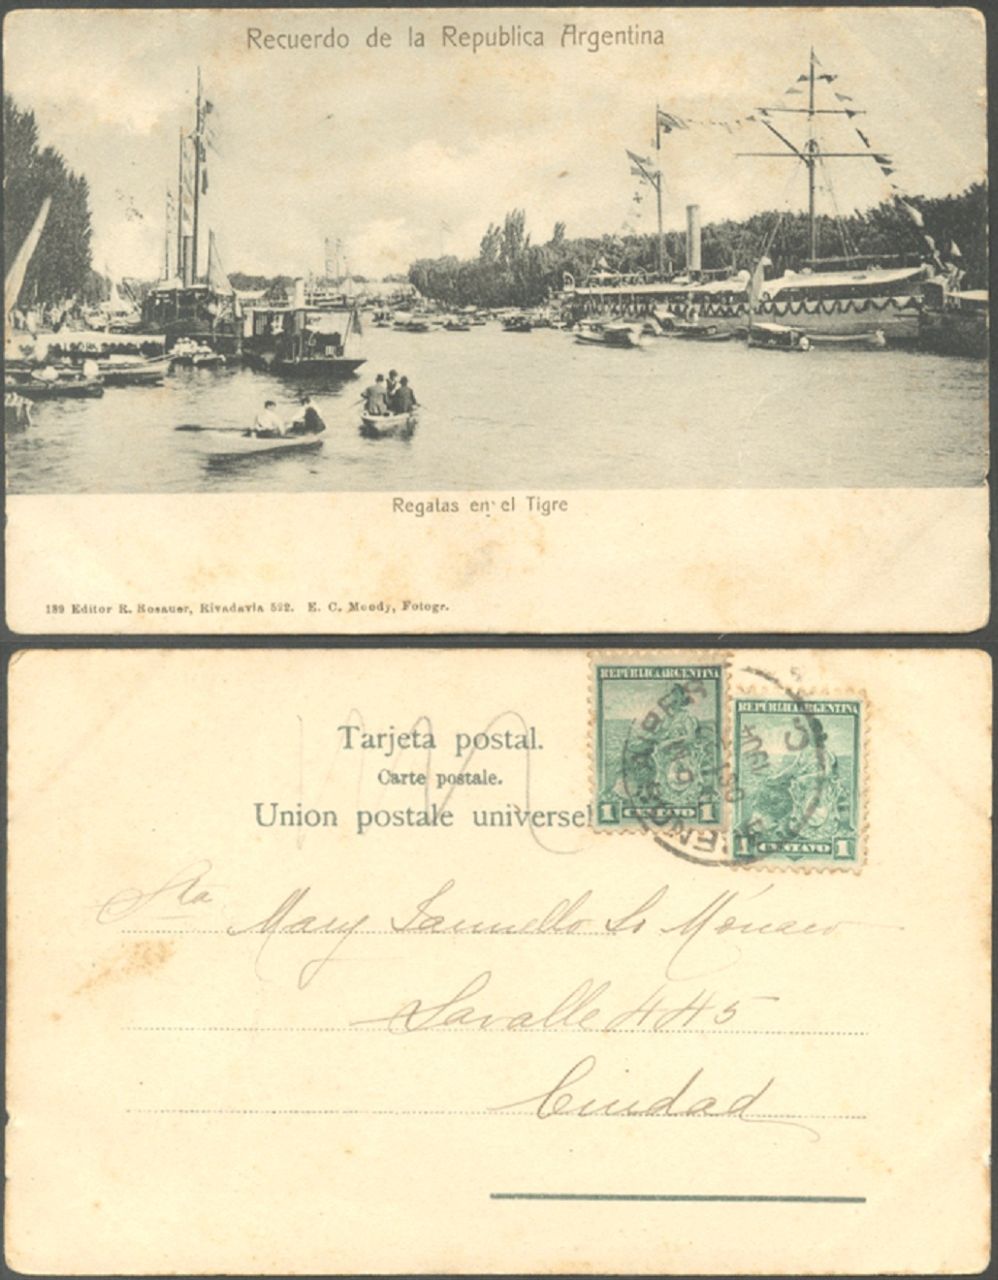 Recuerdo de la Republica Argentina
Regatas en el Tigre
189 Editor R. Rosauer, Rivadavia 522. E. C. Moody, Fotogr.
REPUBLICA ARGENTINA
1 CENTAVO 1
REPUBLICA ARGENTINA
1 CENTAVO 1
Tarjeta postal.
Carte postale.
Union postale universel
Sta Mary
Lavalle 445
Ciudad